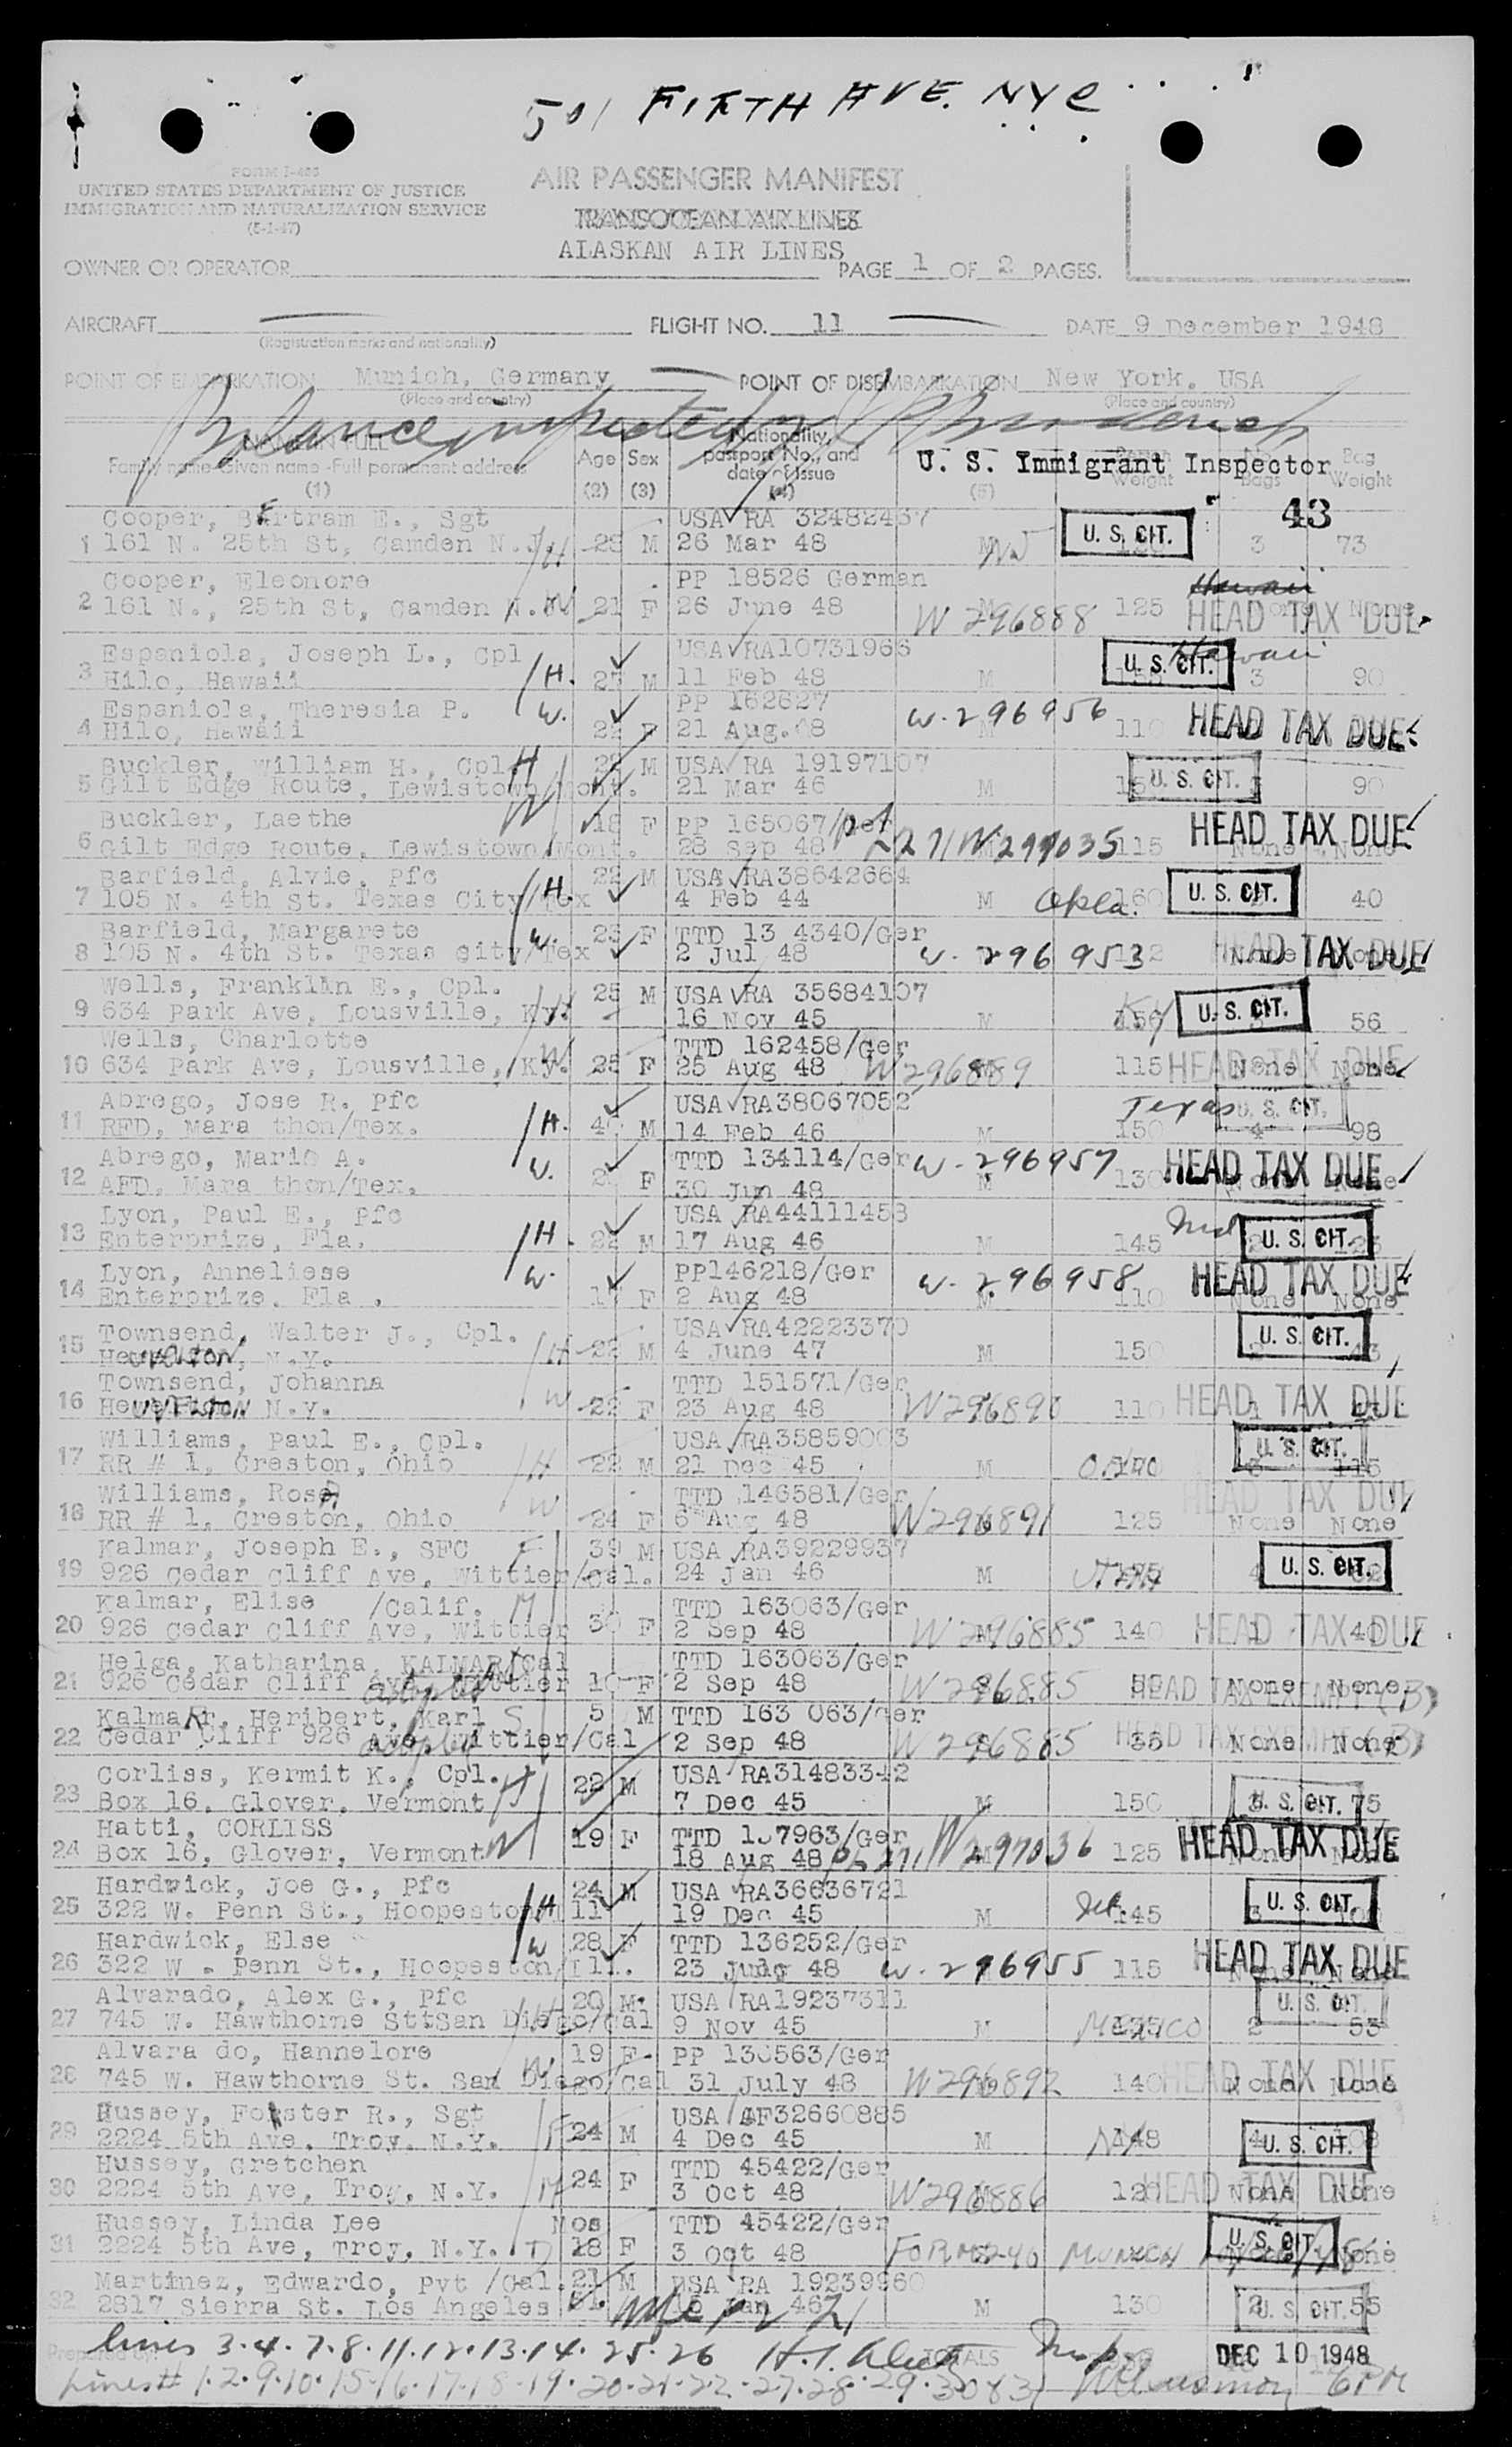 501 FIFTH AVE. NYC
FORM I-466
UNITED STATES DEPARTMENT OF JUSTICE
IMMIGRATION AND NATURALIZATION SERVICE
(5-1-47)
AIR PASSENGER MANIFEST
TRANSOCEAN AIR LINES
ALASKAN AIR LINES
OWNER OR OPERATOR
PAGE 1 OF 2 PAGES.
AIRCRAFT
(Registration marks and nationality)
FLIGHT NO. 11
DATE 9 December 1948
POINT OF EMBARKATION Munich, Germany
(Place and country)
POINT OF DISEMBARKATION New York. USA
(Place and country)
Balance inspected by
U. S. Immigrant Inspector
43
Family name-Given name-Full permanent address
(1)
Age
(2)
Sex
(3)
Nationality, passport No., and date of issue
(4)
(5)
Weight
Bags
Bag Weight
Cooper, Bertram E., Sgt USA RA 32482437
1 161 N. 25th St, Camden N.J. H 28 M 26 Mar 48 M NJ U. S. CIT. 3 73
Cooper, Eleonore PP 18526 German Hawaii
2 161 N., 25th St, Camden N.J. W 21 F 26 June 48 W 296888 125 HEAD TAX DUE None
Espaniola, Joseph L., Cpl USA RA10731966 Hawaii
3 Hilo, Hawaii H. 27 M 11 Feb 48 M U. S. CIT. 3 90
Espaniola, Theresia P. W. PP 162627
4 Hilo, Hawaii 22 F 21 Aug. 48 W. 296956 110 HEAD TAX DUE
Buckler, William H., Cpl H 22 M USA RA 19197107
5 Gilt Edge Route, Lewistown/Mont. 21 Mar 46 M U. S. CIT. 90
Buckler, Laethe W 18 F PP 165067/Ger
6 Gilt Edge Route, Lewistown/Mont. 28 Sep 48 W 297035 115 HEAD TAX DUE None None
Barfield, Alvie, Pfc 22 M USA RA38642664
7 105 N. 4th St. Texas City/Tex H. 4 Feb 44 M Okla. 160 U. S. CIT. 40
Barfield, Margarete 23 F TTD 13 4340/Ger
8 105 N. 4th St. Texas City/Tex W. 2 Jul 48 W. 296953 HEAD TAX DUE None
Wells, Franklin E., Cpl. 25 M USA RA 35684107
9 634 Park Ave, Lousville, Ky. H 16 Nov 45 M Ky 156 U. S. CIT. 56
Wells, Charlotte TTD 162458/Ger
10 634 Park Ave, Lousville, Ky. W 25 F 25 Aug 48 W296889 115 HEAD TAX DUE None None
Abrego, Jose R. Pfc USA RA38067052 Texas
11 RFD, Mara thon/Tex. H. M 14 Feb 46 M 150 U. S. CIT. 4 98
Abrego, Marie A. W. TTD 134114/Ger W. 296957
12 AFD, Mara thon/Tex. F 30 Jun 48 130 HEAD TAX DUE None
Lyon, Paul E., Pfc USA RA44111458
13 Enterprize, Fla. H. 22 M 17 Aug 46 M 145 2 U. S. CIT. 123
Lyon, Anneliese W. PP146218/Ger
14 Enterprize, Fla . F 2 Aug 48 W. 296958 110 HEAD TAX DUE None None
Townsend, Walter J., Cpl. USA RA42223370
15 N.Y. H 22 M 4 June 47 M 150 U. S. CIT.
Townsend, Johanna TTD 151571/Ger
16 N.Y. W 22 F 23 Aug 48 W296890 110 HEAD TAX DUE 1
Williams, Paul E., Cpl. USA RA35859003
17 RR # 1, Creston, Ohio H 22 M 21 Dec 45 M OHIO U. S. CIT. 115
Williams, Rosa TTD 146581/Ger
18 RR # 1, Creston, Ohio W 24 F 6 Aug 48 W296891 125 HEAD TAX DUE None None
Kalmar, Joseph E., SFC F 39 M USA RA39229937
19 926 Cedar Cliff Ave, Wittier/Cal. 24 Jan 46 M UTAH U. S. CIT.
Kalmar, Elise /Calif. M TTD 163063/Ger
20 926 Cedar Cliff Ave, Wittier 30 F 2 Sep 48 W 296885 140 HEAD TAX DUE 1 40
Helga, Katharina, KALMAR/Cal TTD 163063/Ger
21 926 Cedar Cliff Ave, Wittier adopted 10 F 2 Sep 48 W 296885 HEAD TAX EXEMPT (B) None None
Kalmar, Heribert, Karl S 5 M TTD 163 063/Ger
22 Cedar Cliff 926 Ave, Wittier/Cal adopted 2 Sep 48 W 296885 35 HEAD TAX EXEMPT (B) None None
Corliss, Kermit K., Cpl. H 22 M USA RA31483342
23 Box 16, Glover, Vermont 7 Dec 45 M 150 U. S. CIT. 75
Hatti, CORLISS 19 F TTD 137963/Ger
24 Box 16, Glover, Vermont W 18 Aug 48 W297036 125 HEAD TAX DUE None
Hardwick, Joe G., Pfc 24 M USA RA36636721
25 322 W. Penn St., Hoopeston H Ill 19 Dec 45 M 145 3 U. S. CIT.
Hardwick, Else W 28 F TTD 136252/Ger
26 322 W. Penn St., Hoopeston/Ill. 23 July 48 W. 296955 115 HEAD TAX DUE
Alvarado, Alex G., Pfc 20 M USA RA19237311
27 745 W. Hawthorne St San Diego/Cal H 9 Nov 45 M MEXICO 2 U. S. CIT. 53
Alvara do, Hannelore 19 F PP 130563/Ger
28 745 W. Hawthorne St. San Diego/Cal W 31 July 48 W296892 140 HEAD TAX DUE None None
Hussey, Forster R., Sgt USA AF32660885
29 2224 5th Ave. Troy, N.Y. F 24 M 4 Dec 45 M NY 148 4 U. S. CIT.
Hussey, Gretchen TTD 45422/Ger
30 2224 5th Ave, Troy, N.Y. M 24 F 3 Oct 48 W296886 HEAD TAX DUE None None
Hussey, Linda Lee Mos TTD 45422/Ger
31 2224 5th Ave, Troy, N.Y. D 18 F 3 Oct 48 FORM 240 MUNICH U. S. CIT. None
Martinez, Edwardo, Pvt /Cal. 21 M USA RA 19239960
32 2817 Sierra St. Los Angeles Jan 46 M 130 2 U. S. CIT. 55
Prepared by
lines 3.4.7.8.11.12.13.14.25.26 TOTALS Insp. DEC 10 1948
Lines# 1.2.9.10.15.16.17.18.19.20.21.22.27.28.29.30&31 6PM